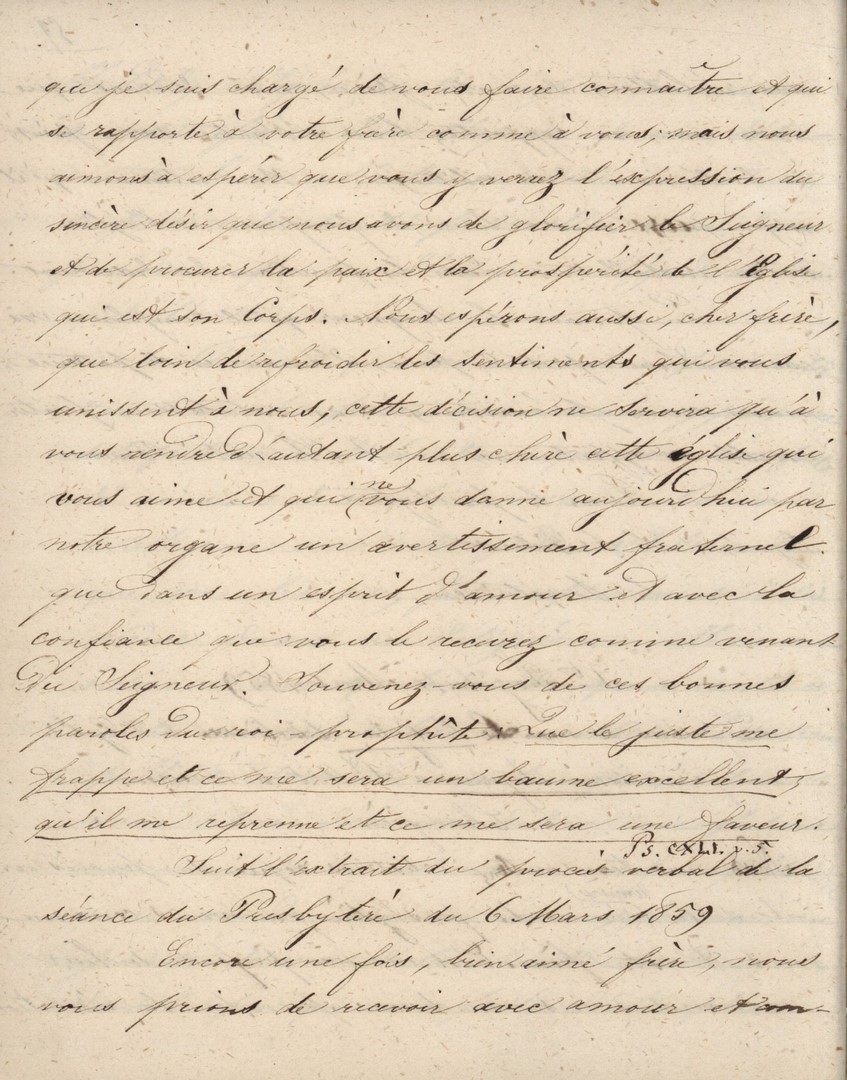 que je suis chargé de vous faire connaître et qui
se rapporte à votre frère comme à vous; mais nous
aimons à espérer que vous y verrez l'expression du
sincère désir que nous avons de glorifier le Seigneur
et de procurer la paix et la prospérité de l'Eglise
qui est son Corps. Nous espérons aussi, cher frère,
que loin de refroidir les sentiments qui vous
unissent à nous, cette décision ne servira qu'à
vous rendre d'autant plus chère cette église qui
vous aime et qui ne vous donne aujourd'hui par
notre organe un avertissement fraternel
que dans un esprit d'amour et avec la
confiance que vous le recevrez comme venant
du Seigneur. Souvenez-vous de ces bonnes
paroles du roi-prophète: Que le juste me
frappe et ce me sera un baume excellent,
qu'il me reprenne et ce me sera une faveur.
Ps. CXLI. v. 5.
Suit l'extrait du procès-verbal de la
séance du Presbytère du 6 Mars 1859
Encore une fois, bien aimé frère, nous
vous prions de recevoir avec amour et